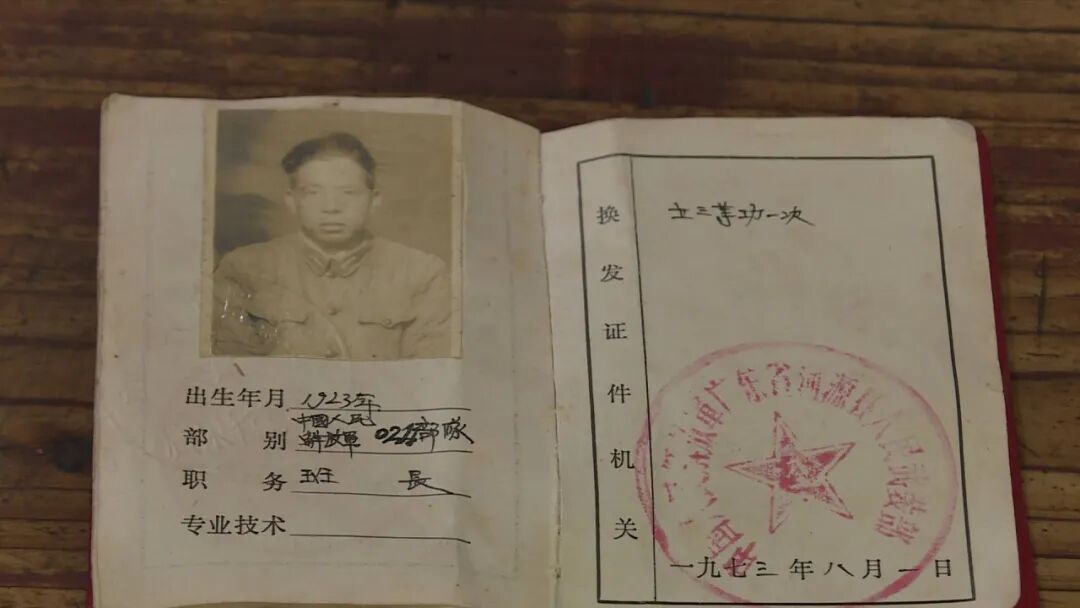 出生年月 1923年
部别 中國人民解放軍 部隊
职务 班長
专业技术
换发证件机关
立三等功一次
中国人民解放军广东省河源县人民武装部
一九七三年八月一日